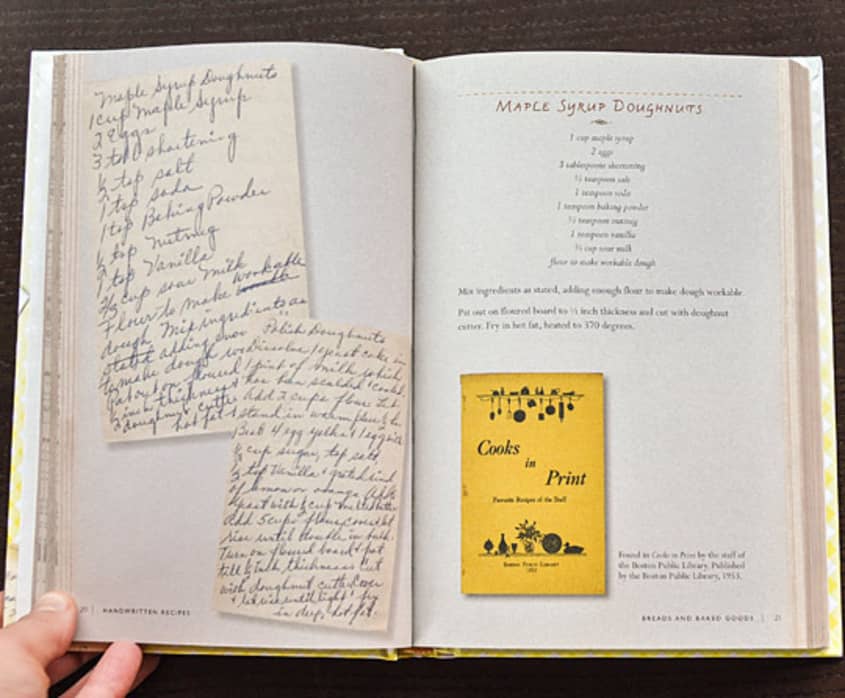 Maple Syrup Doughnuts
1 cup Maple Syrup
2 Eggs
3 tbl shortening
½ tsp salt
1 tsp soda
1 tsp Baking Powder
½ tsp Nutmeg
1 tsp Vanilla
⅔ cup sour milk
Flour to make workable
dough Mix ingredients as
stated adding enou
to make dough wo
Pat out on floured
½ inch thickness +
doughnut cutte
hot fat
Polish Doughnuts
Dissolve 1 yeast cake in
1 pint of milk which
has been scalded + cooled.
Add 2 cups flour Let
stand in warm place
Beat 4 egg yolks + 1 egg with
cup sugar, tsp salt
½ tsp Vanilla + grated rind
of lemon or orange. Add to
yeast with cup melted butter
Add 5 cups flour, cover let
rise until double in bulk.
Turn on floured board + pat
till thickness Cut
with doughnut cutter. Cover
+ let rise until light + fry
in deep, hot fat.
20 | HANDWRITTEN RECIPES
MAPLE SYRUP DOUGHNUTS
1 cup maple syrup
2 eggs
3 tablespoons shortening
½ teaspoon salt
1 teaspoon soda
1 teaspoon baking powder
½ teaspoon nutmeg
1 teaspoon vanilla
⅔ cup sour milk
flour to make workable dough
Mix ingredients as stated, adding enough flour to make dough workable.
Pat out on floured board to ½ inch thickness and cut with doughnut
cutter. Fry in hot fat, heated to 370 degrees.
Cooks
in
Print
Favorite Recipes of the Staff
BOSTON PUBLIC LIBRARY
1953
Found in Cooks in Print by the staff of
the Boston Public Library. Published
by the Boston Public Library, 1953.
BREADS AND BAKED GOODS | 21